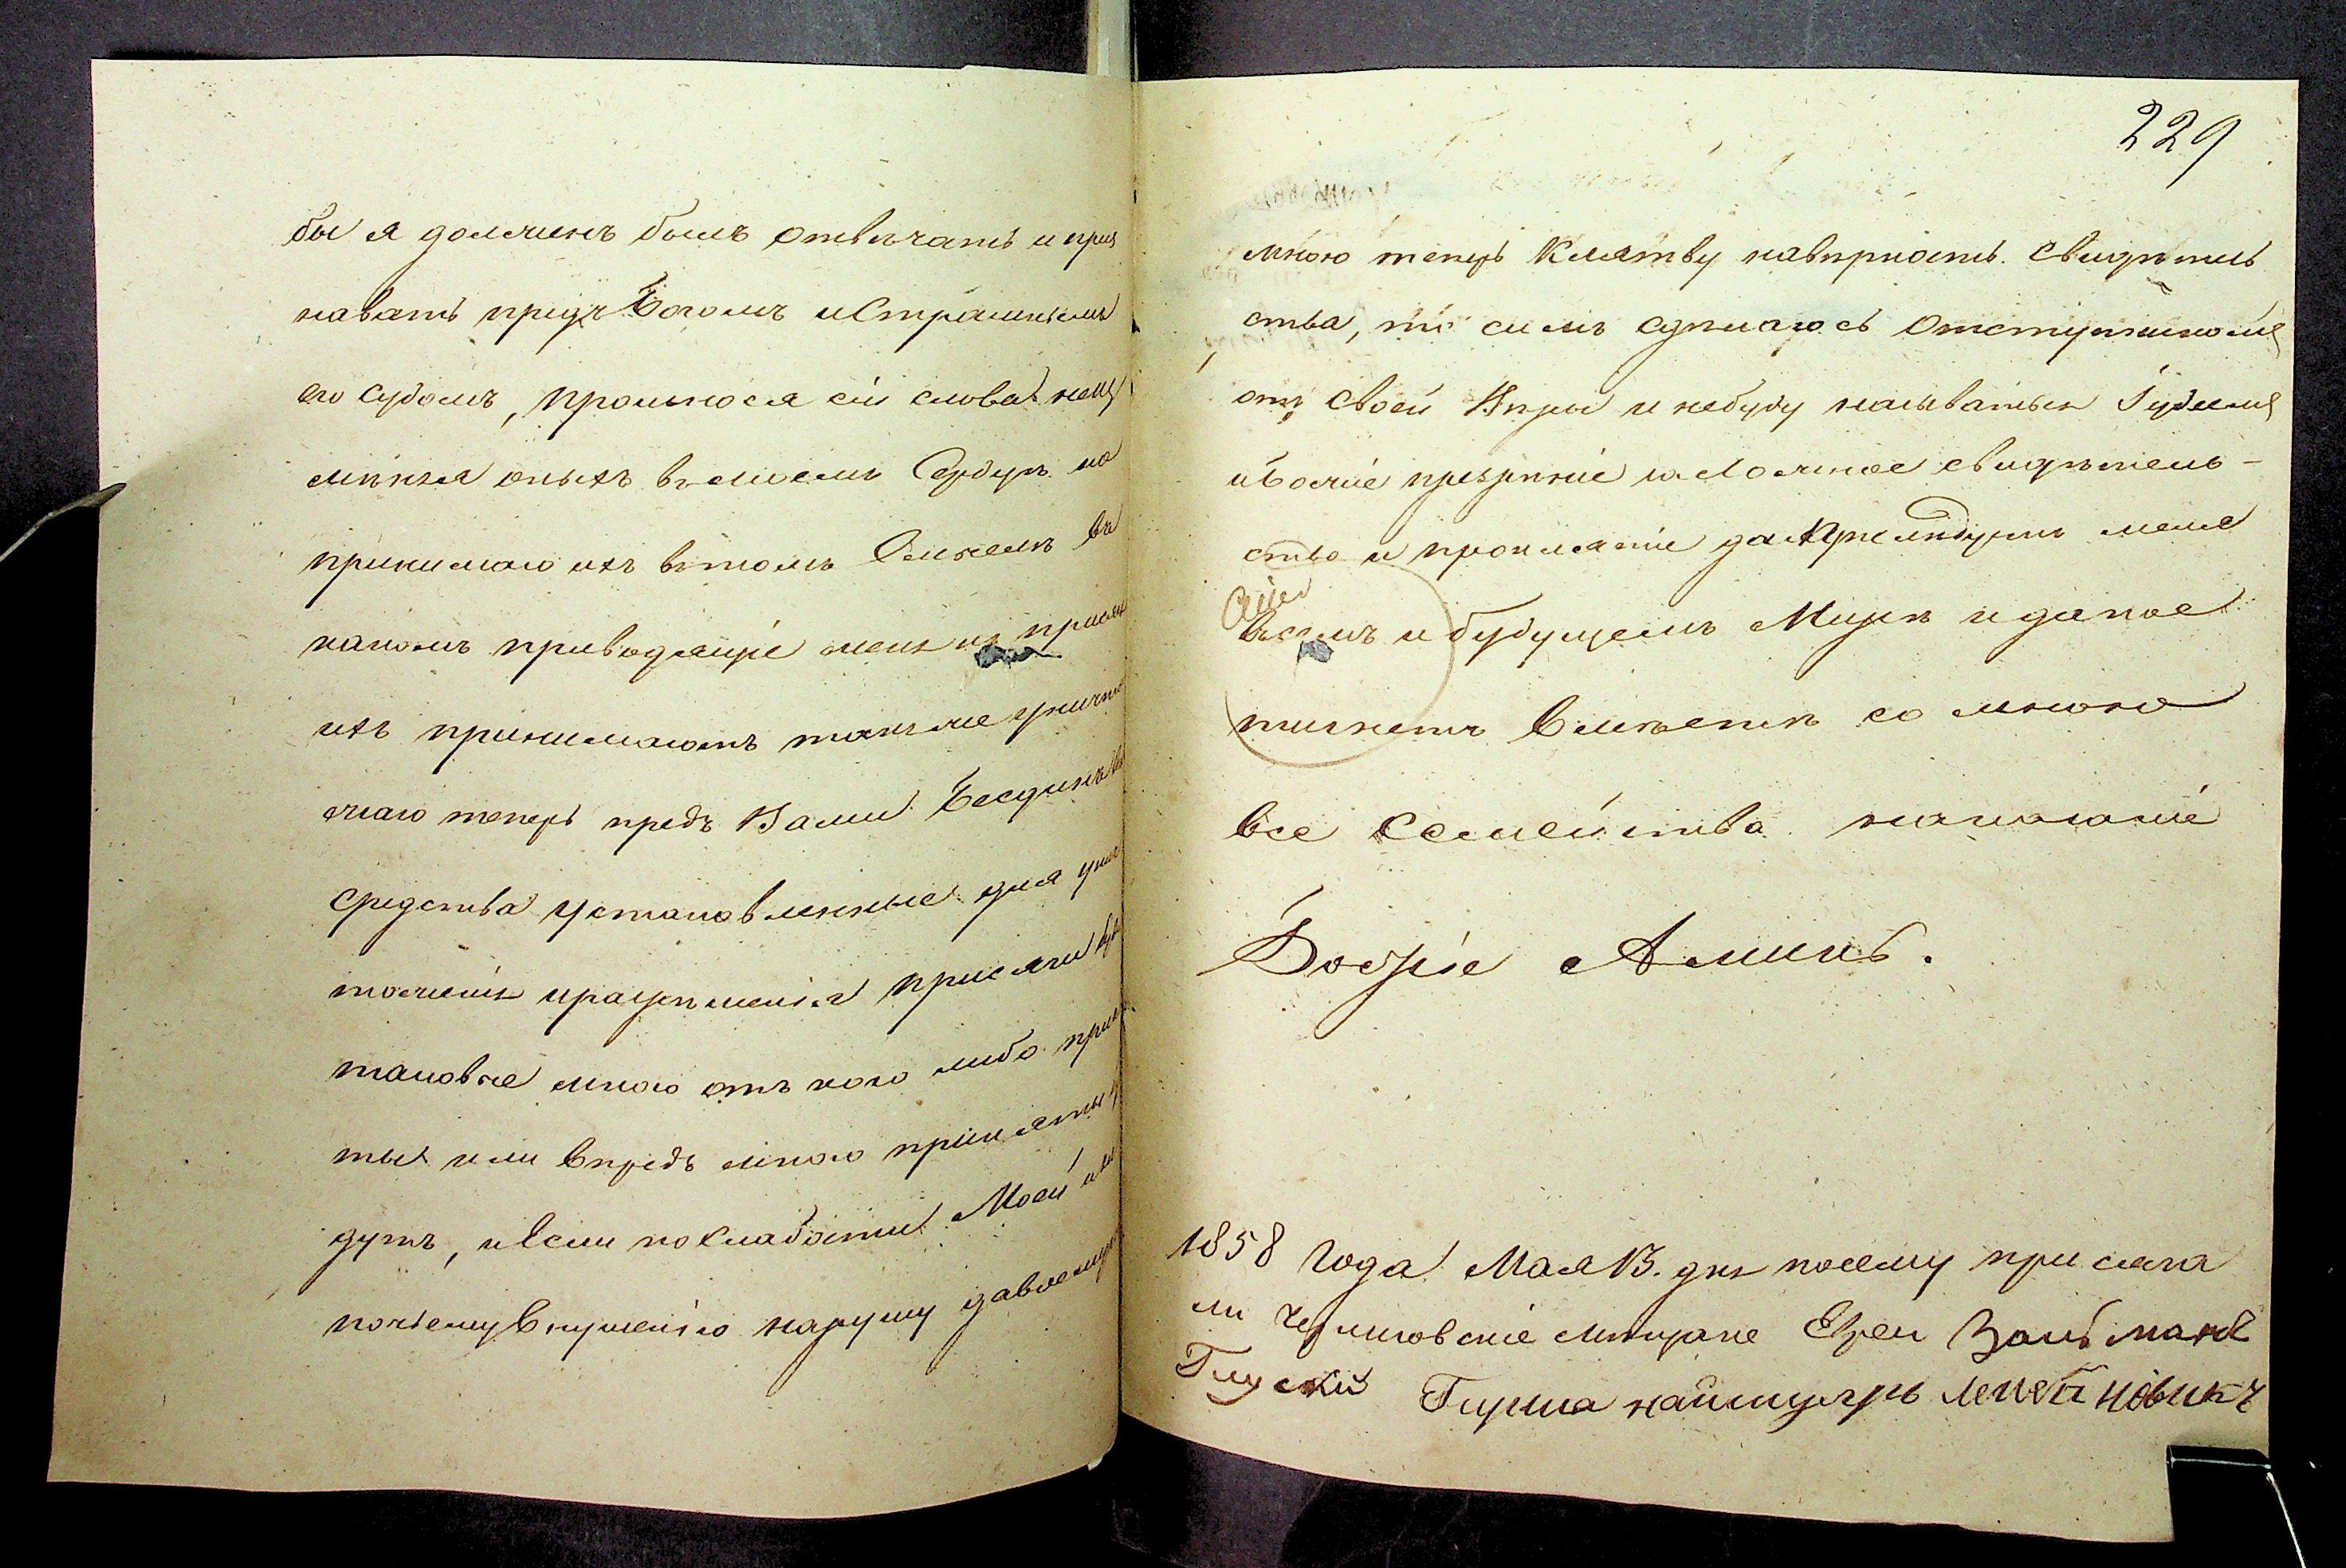 бы я долженъ былъ отвѣчать и приз
навать предъ Богомъ и Страшнымъ
его судомъ, произнося сіи слова нему
мѣняя оныхъ въ моемъ Сердцѣ но
принимаю ихъ вътомъ Смыслѣ въ
какомъ приводящіе меня къ присягѣ
ихъ принимаютъ такъ же уничто
жаю теперь предъ Вами Бесдинъ
средства установленные для унич
тоженія иразрѣшенія присяги
таковые мною отъ кого либо приня
тых или впредь мною приняты бу
дутъ, иЕсли по Слабости Моей или
почьемувнушенію нарушу даваемую
229
мною теперь Клятву навѣрность свидѣтель
ства, то симъ сдѣлаюсь Отступникомъ
отъ своей Вѣры и небуду называться Іудеемъ
иБожіе презрѣніе за Ложное свидѣтель-
ство и проклятіе да преслѣдуетъ меня
всемъ и будущемъ Мирѣ и дапос
тигнетъ вмѣстѣ со мною
все семейство наказаніе
Божіе Аминь.
1858 Года Мая 13. дня посему присяга
ли Черниговскіе мѣщане Евреи Залманъ
Глускій Гирша